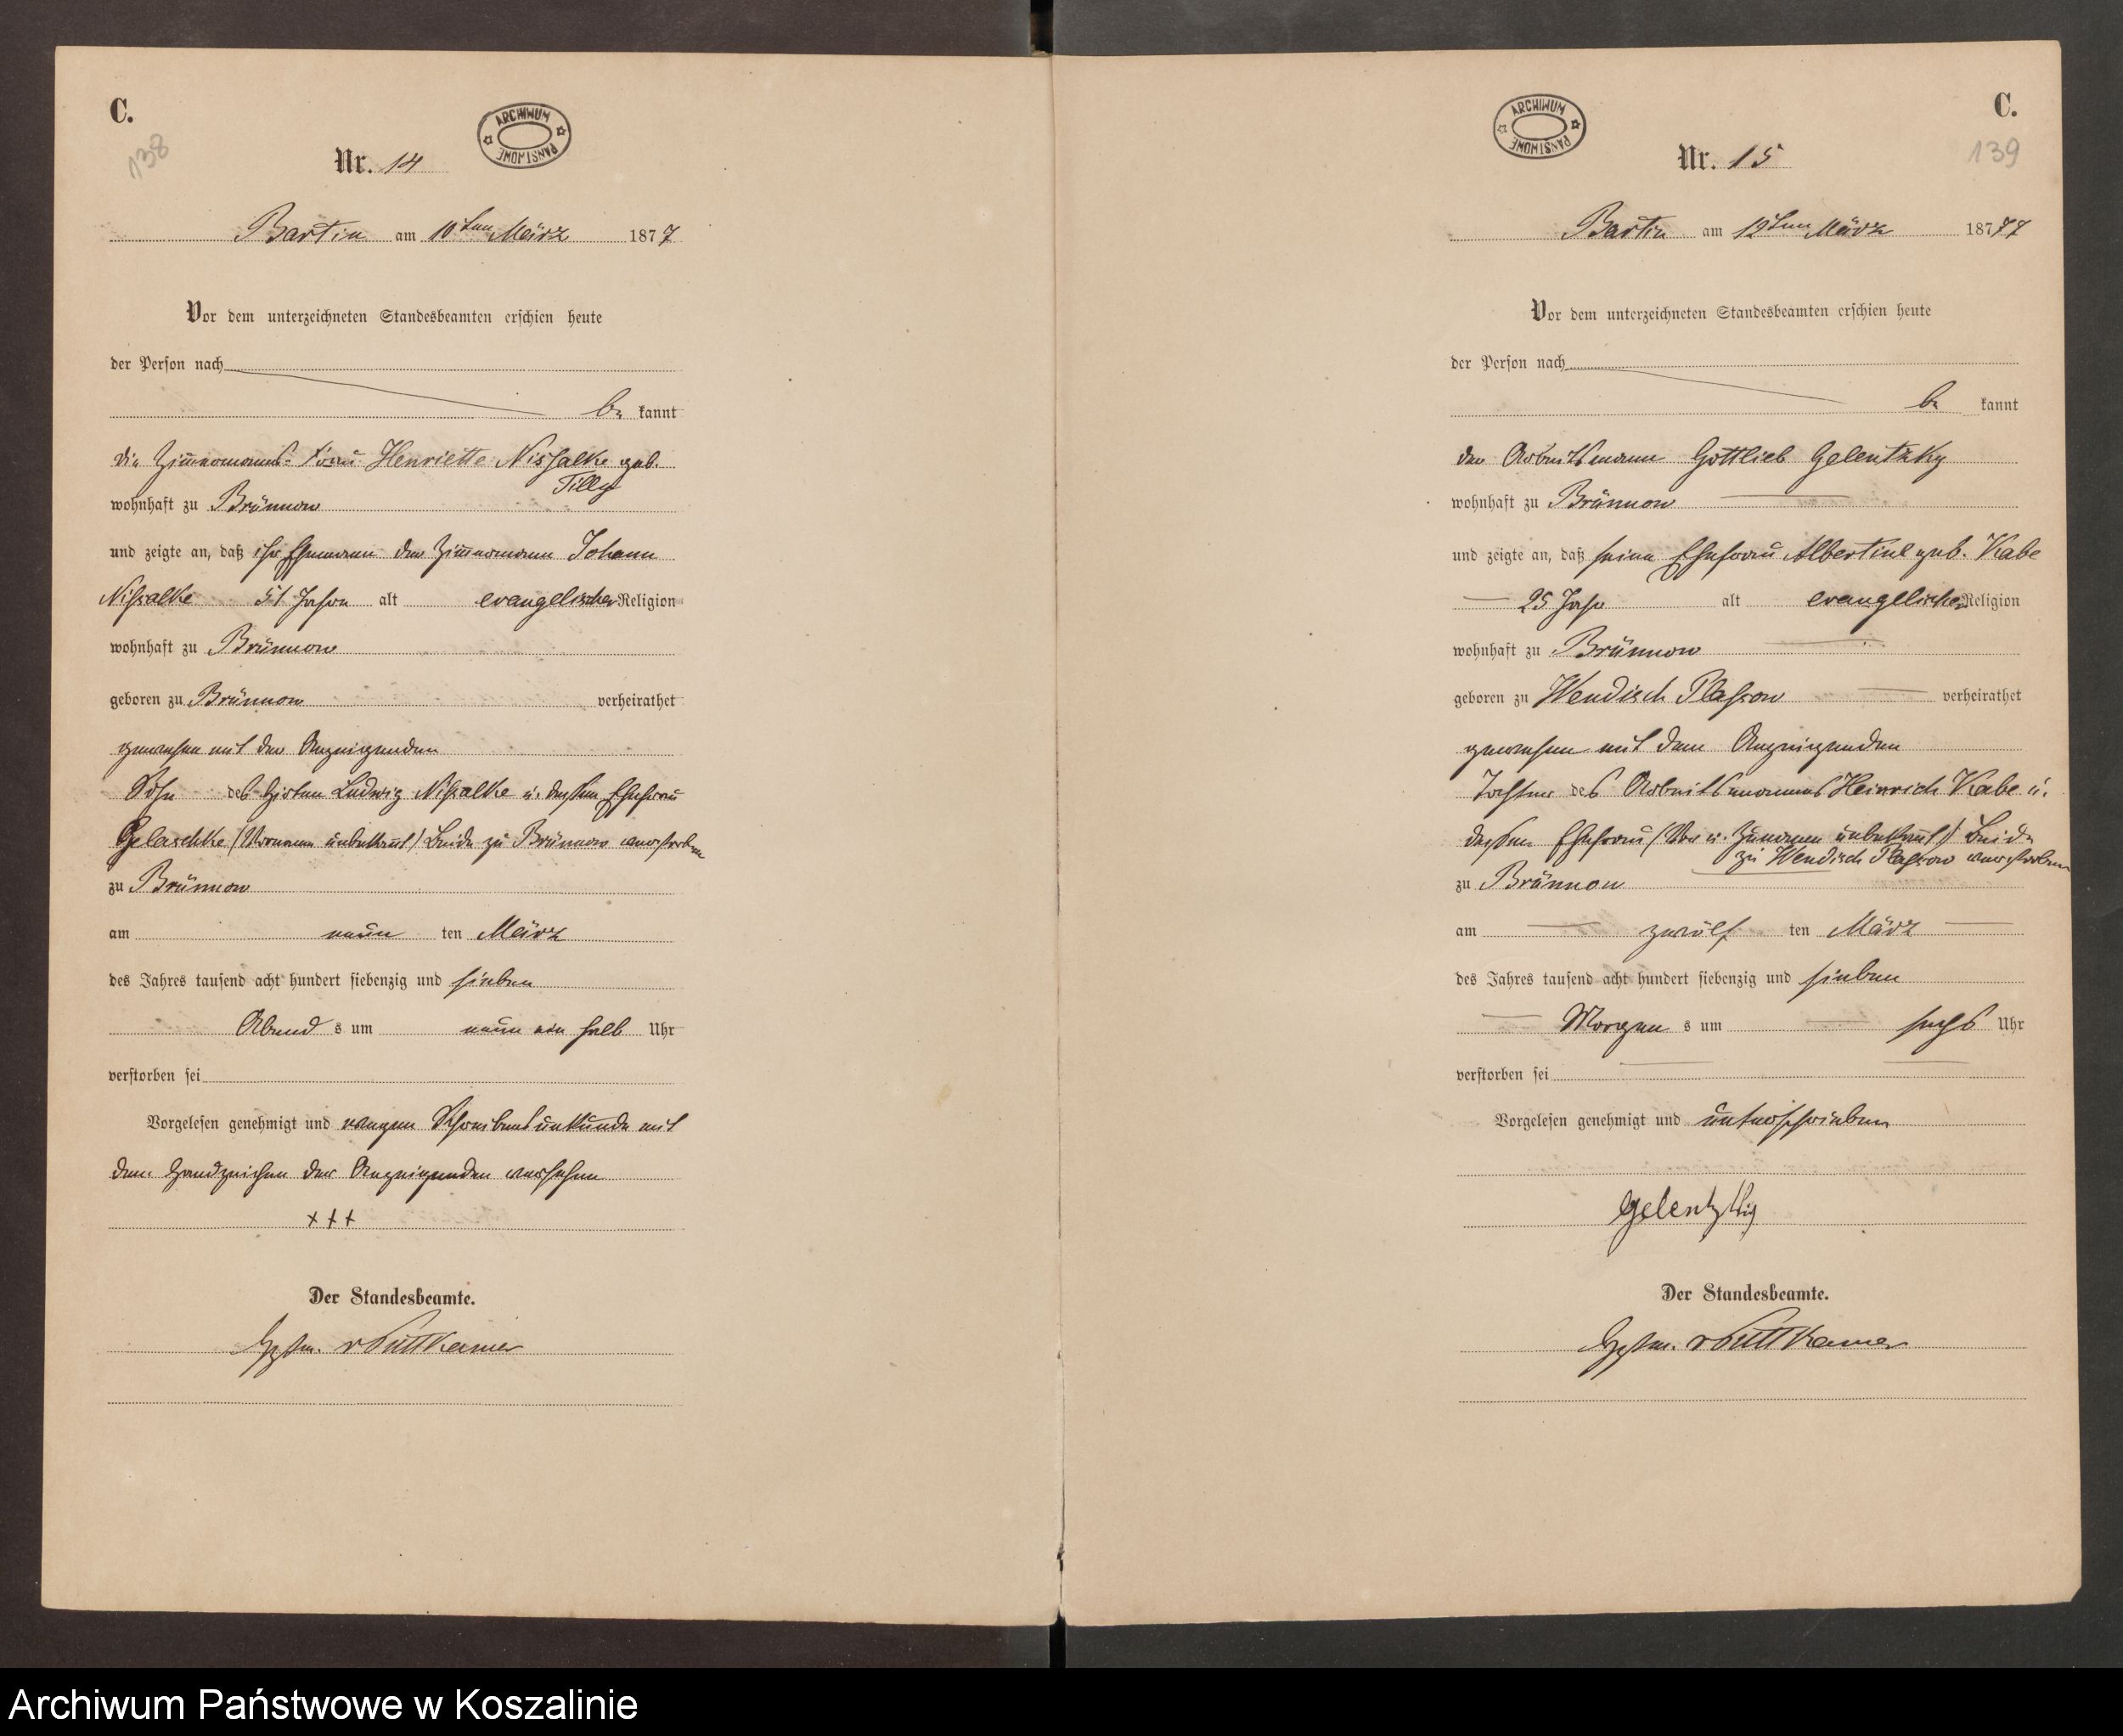 C.
138
ARCHIWUM PAŃSTWOWE
Nr. 14
Bartin am 10ten März 1877
Vor dem unterzeichneten Standesbeamten erschien heute
der Person nach
be kannt
die Zimmermanns-Frau Henriette Nißalke geb.
Tilly
wohnhaft zu Brünnow
und zeigte an, daß ihr Ehemann der Zimmermann Johann
Nißalke 51 Jahre alt evangelischer Religion
wohnhaft zu Brünnow
geboren zu Brünnow verheirathet
gewesen mit der Anzeigenden
Sohn des Hirten Ludwig Nißalke u. dessen Ehefrau
Gelaschke (Vorname unbekannt) Beide zu Brünnow verstorben
zu Brünnow
am neun ten März
des Jahres tausend acht hundert siebenzig und sieben
Abend s um neun ein halb Uhr
verstorben sei
Vorgelesen genehmigt und wegen Schreibensunkunde mit
dem Handzeichen der Anzeigenden versehen
+++
Der Standesbeamte.
v Puttkamer
C.
139
ARCHIWUM PAŃSTWOWE
Nr. 15
Bartin am 12ten März 18777
Vor dem unterzeichneten Standesbeamten erschien heute
der Person nach
be kannt
der Arbeitsmann Gottlieb Gelentzky
wohnhaft zu Brünnow
und zeigte an, daß seine Ehefrau Albertine geb. Kabe
25 Jahr alt evangelischer Religion
wohnhaft zu Brünnow
geboren zu Wendisch Plassow verheirathet
gewesen mit dem Anzeigenden
Tochter des Arbeitsmannes Heinrich Kabe u.
dessen Ehefrau (Vor u. Zunamen unbekannt) Beide
zu Wendisch Plassow verstorben
zu Brünnow
am zwölf ten März
des Jahres tausend acht hundert siebenzig und sieben
Morgen s um sechs Uhr
verstorben sei
Vorgelesen genehmigt und unterschrieben
Gelentzkij
Der Standesbeamte.
v Puttkamer
Archiwum Państwowe w Koszalinie